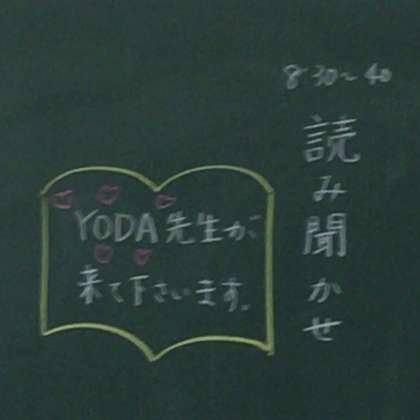 8:30～40
読み聞かせ
YODA先生が
来て下さいます。